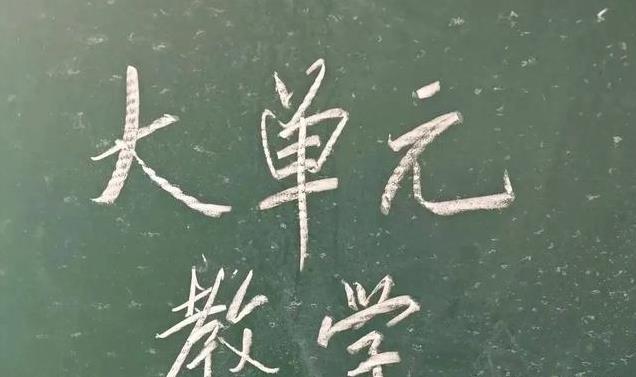 大单元
教学